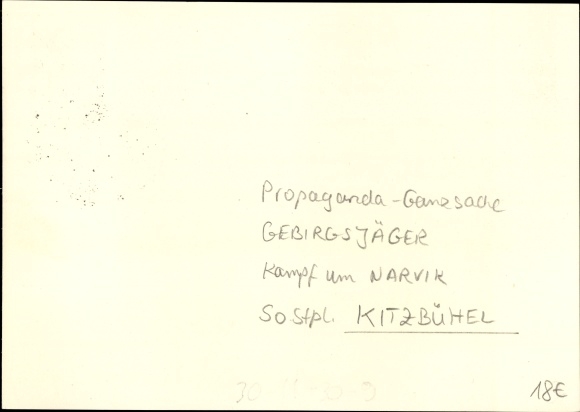 Propaganda-Ganzsache
GEBIRGSJÄGER
Kampf um NARVIK
SoStpl. KITZBÜHEL
18€